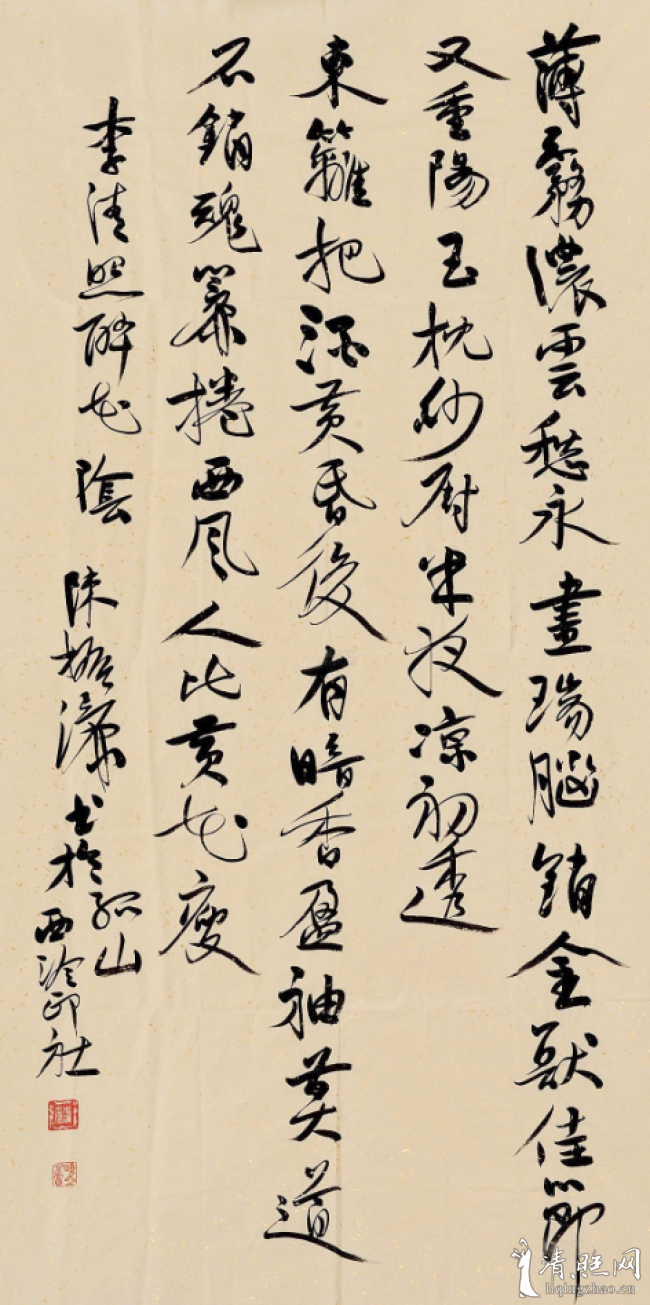 薄霧濃雲愁永晝瑞腦銷金獸佳節
又重陽玉枕紗厨半夜凉初透
東籬把酒黃昏後有暗香盈袖莫道
不銷魂簾捲西風人比黃花瘦
李清照醉花陰 陳振濂書於孤山
西泠印社
清照网
liqingzhao.cn